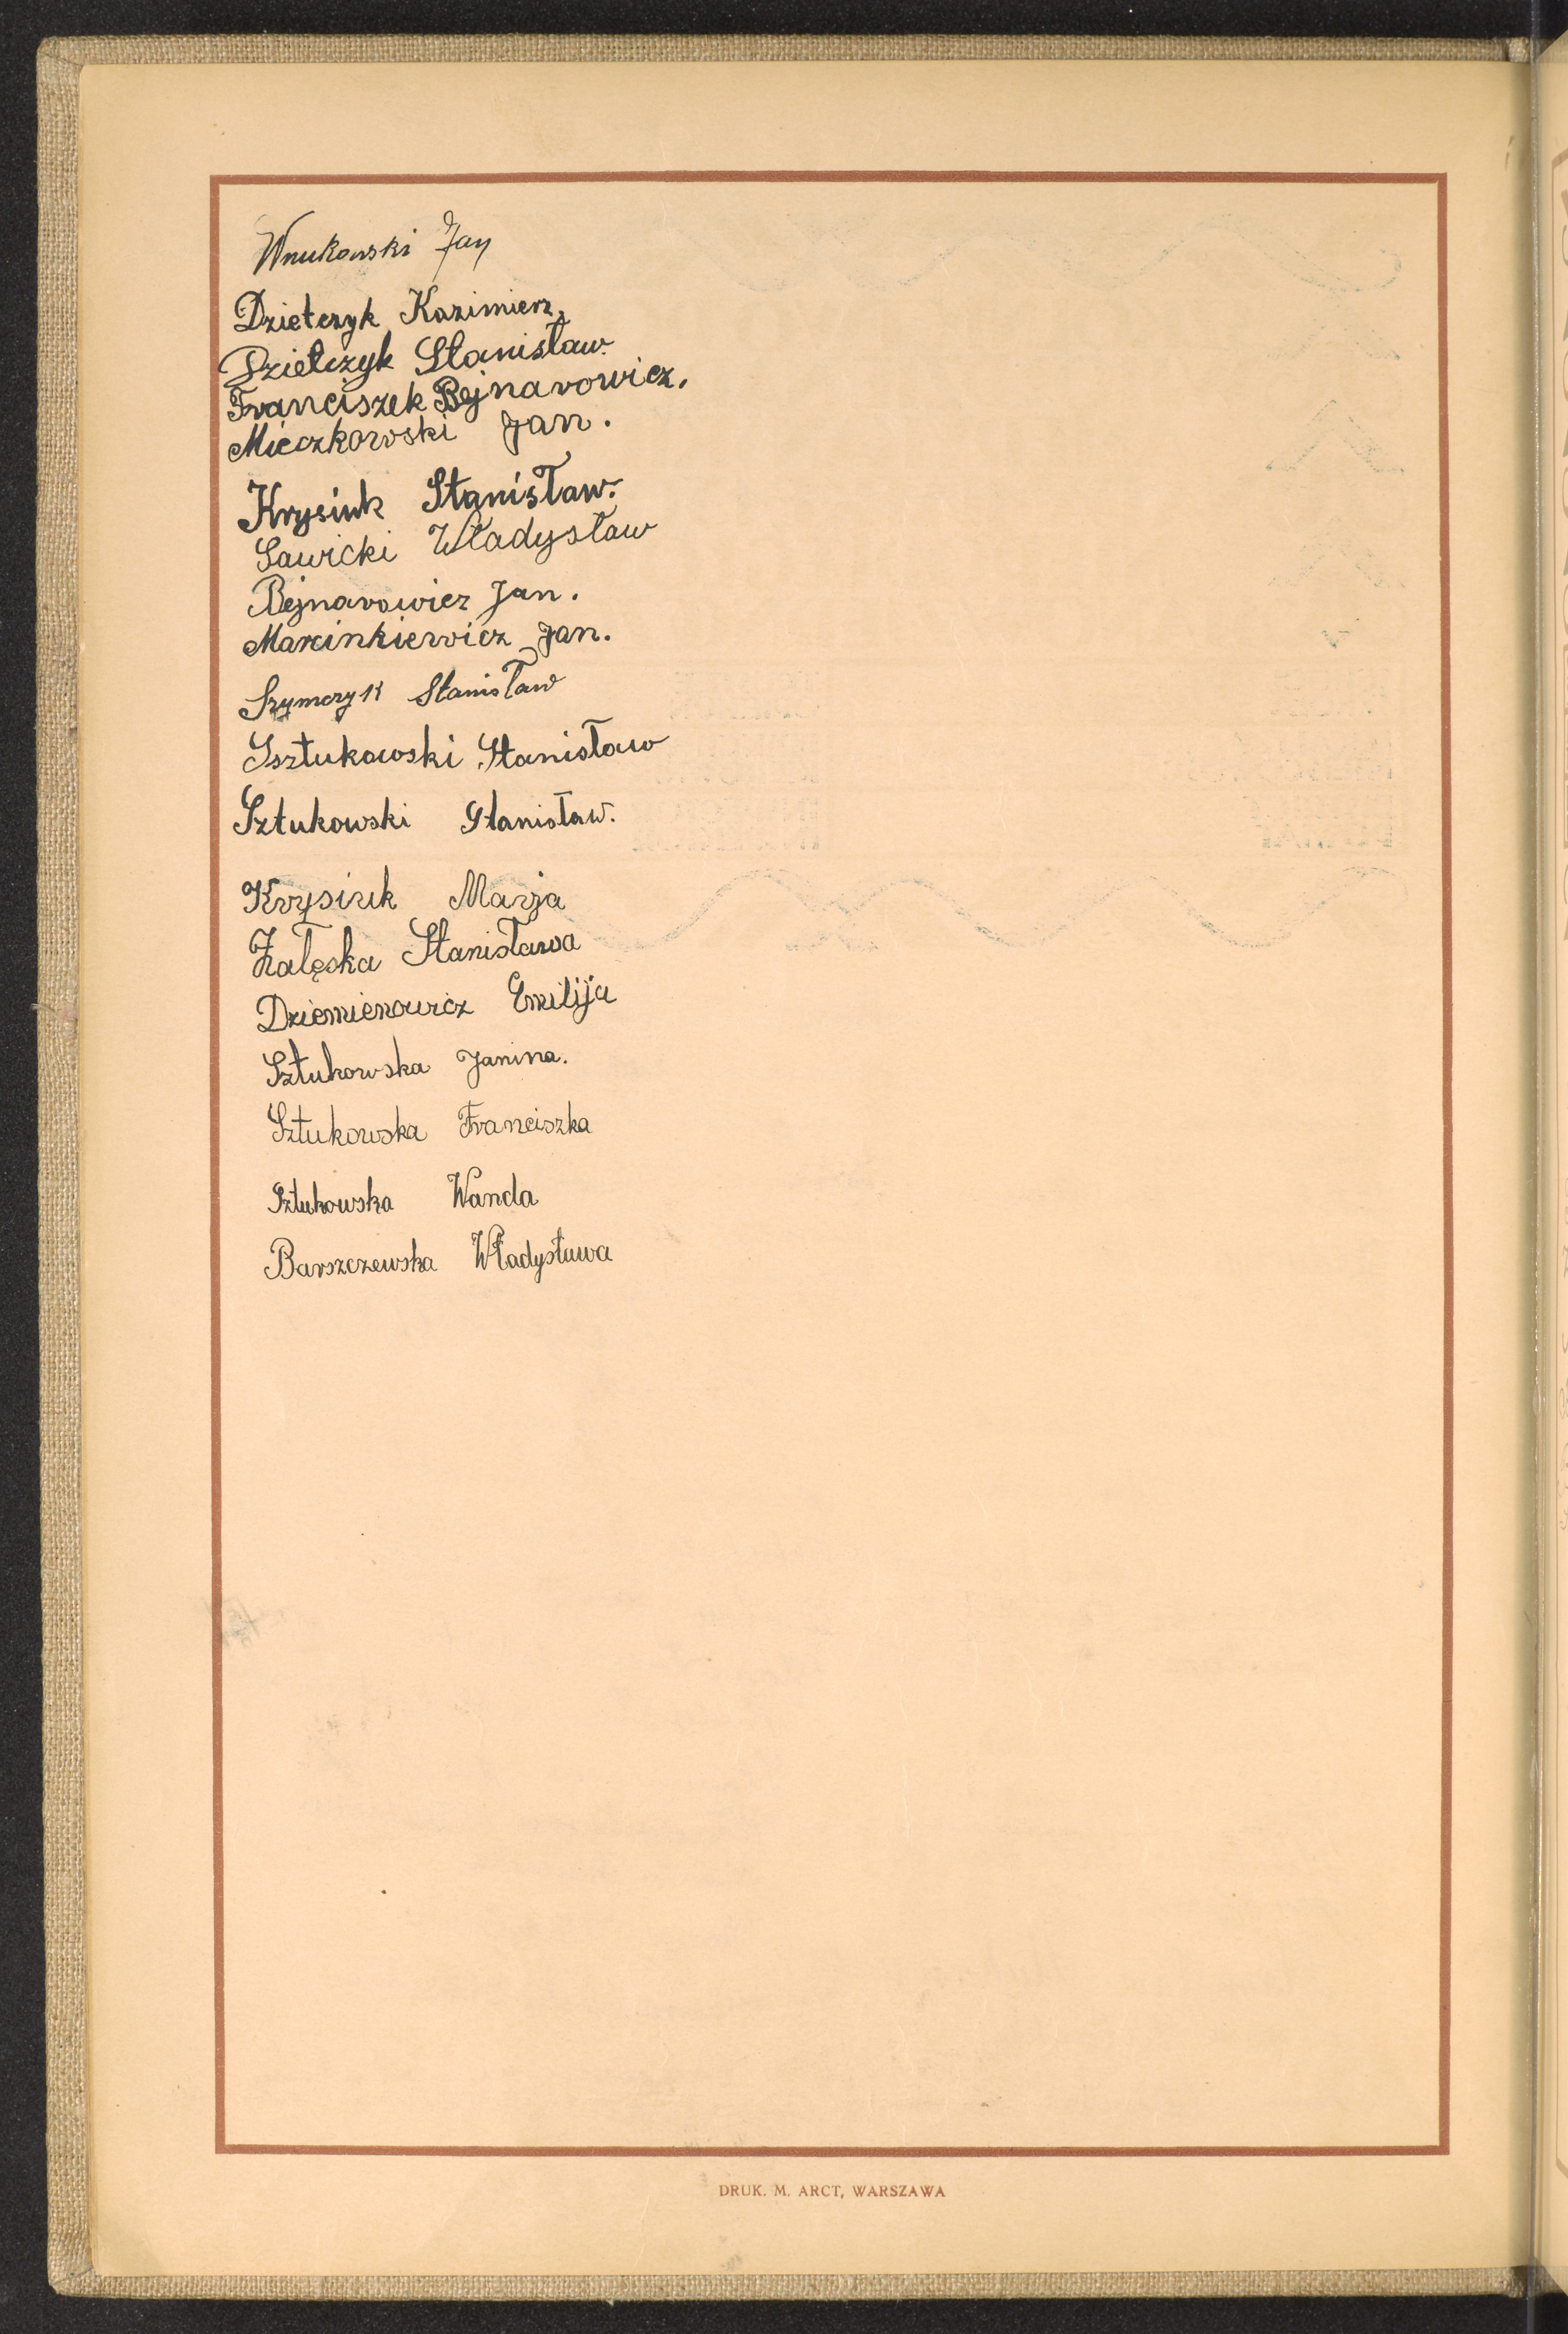 Wnukowski Jan
Dzietczyk Kazimierz,
Dzietczyk Stanisław.
Franciszek Bejnarowicz.
Mieczkowski Jan.
Krysiuk Stanisław.
Sawicki Władysław
Bejnarowicz Jan.
Marcinkiewicz Jan.
Szymczyk Stanisław
Ssztukowski Stanisław
Sztukowski Stanisław.
Krysiuk Marja
Załęska Stanisława
Dziemienowicz Emilija
Sztukowska Janina.
Sztukowska Franciszka
Sztukowska Wanda
Barszczewska Władysława
DRUK. M. ARCT, WARSZAWA